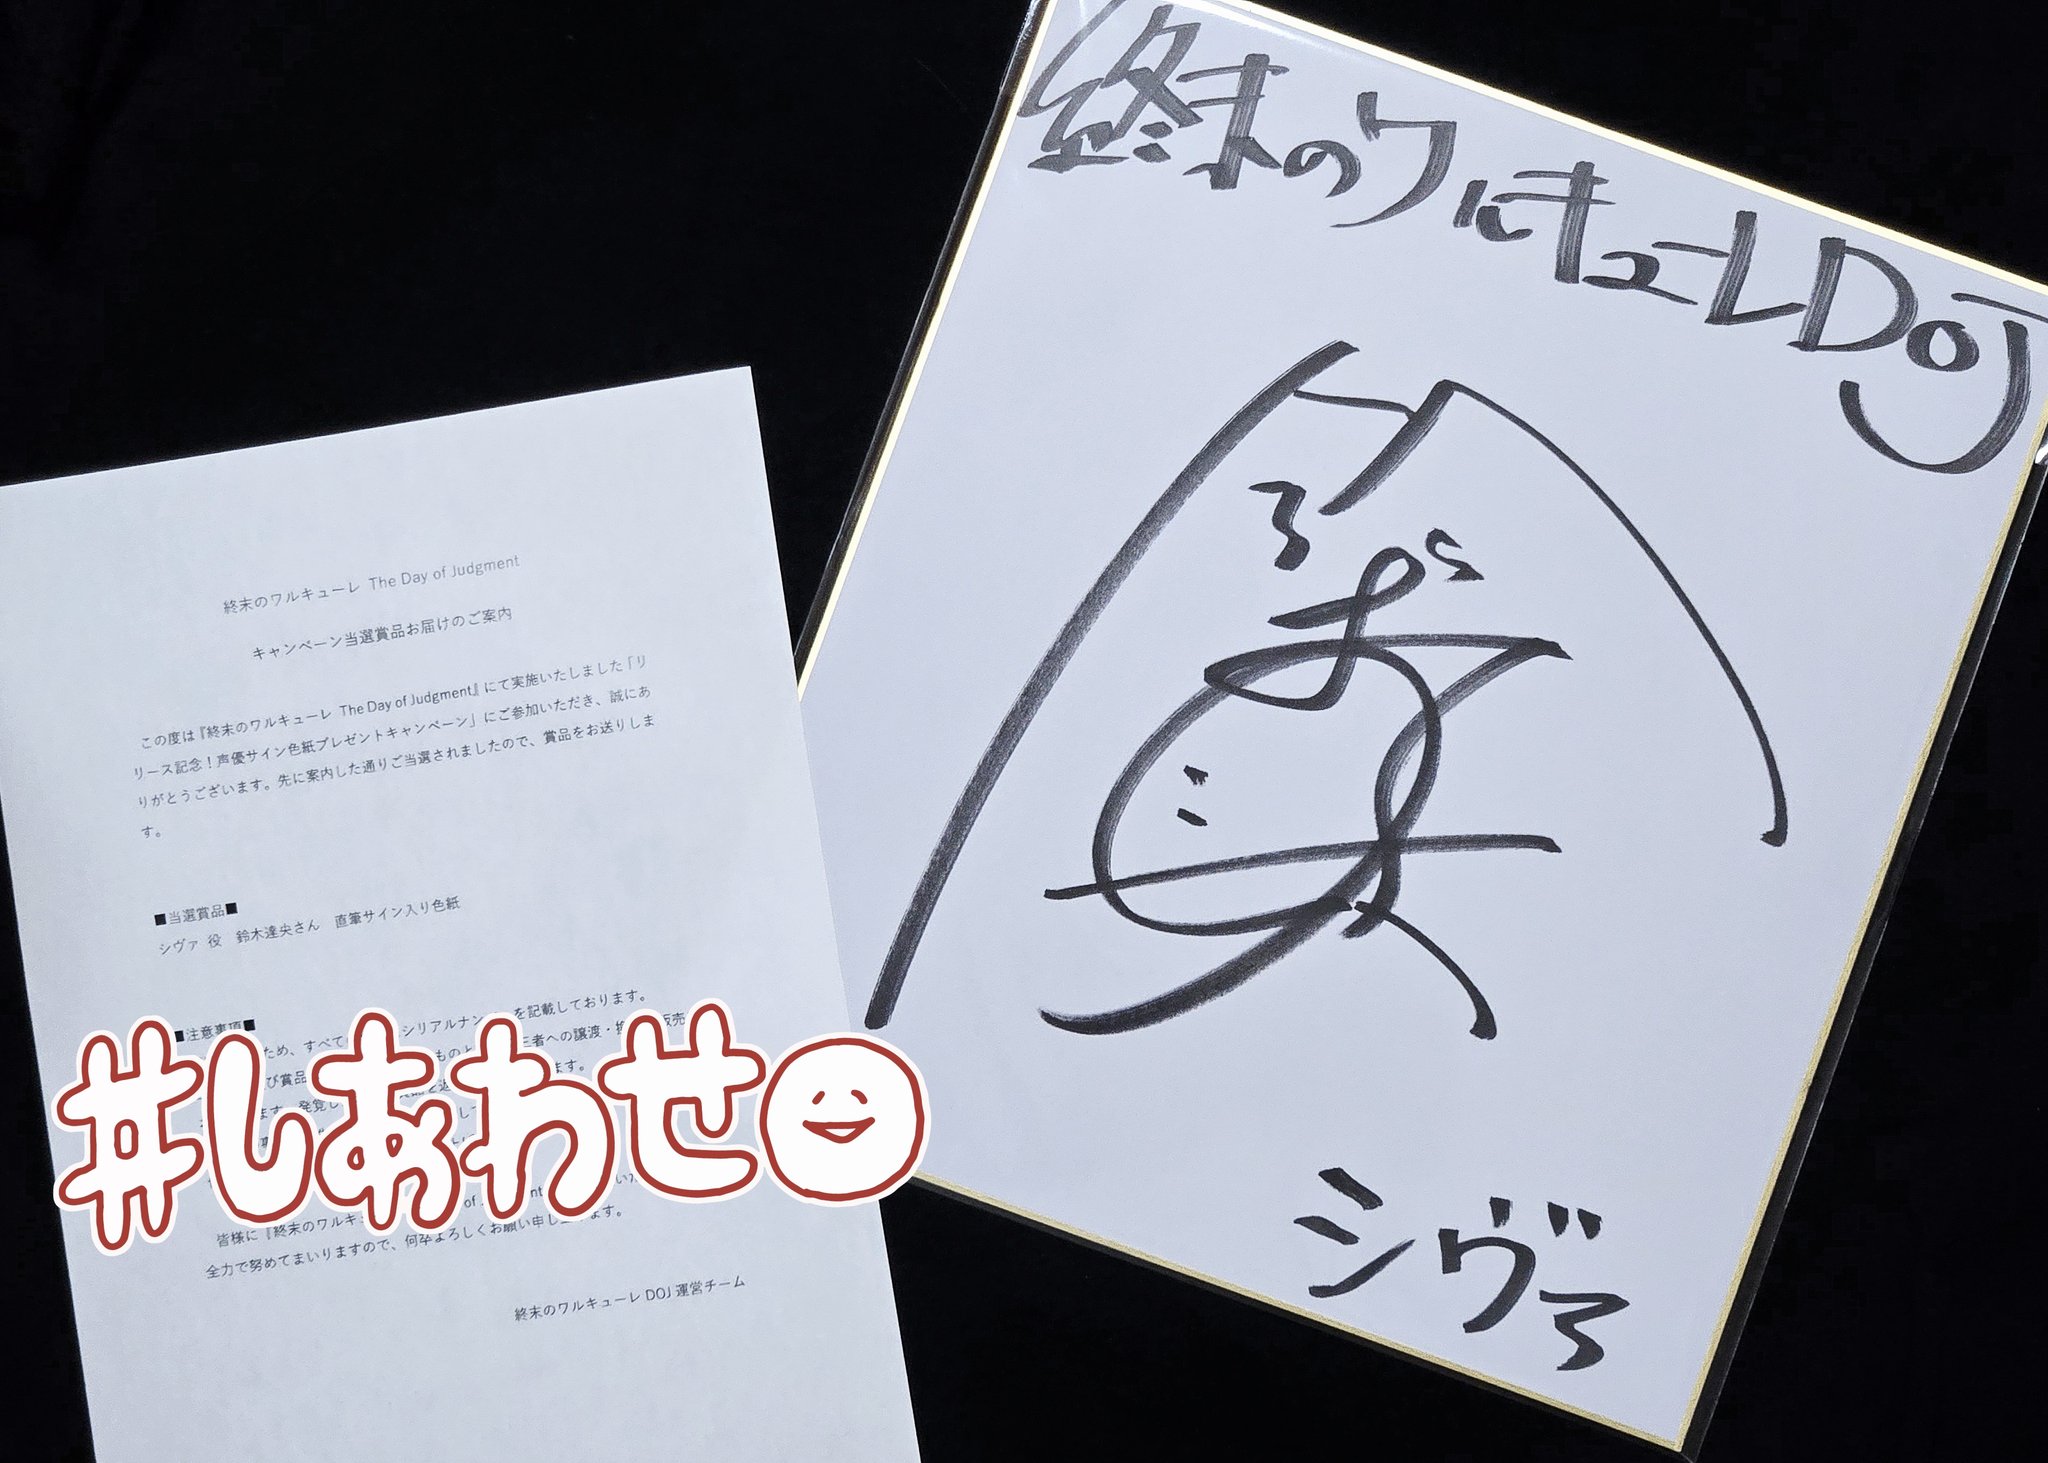 終末のワルキューレ The Day of Judgment
キャンペーン当選賞品お届けのご案内
この度は『終末のワルキューレ The Day of Judgment』にて実施いたしました「リ
リース記念!声優サイン色紙プレゼントキャンペーン」にご参加いただき、誠にあ
りがとうございます。先に案内した通りご当選されましたので、賞品をお送りしま
す。
■当選賞品■
シヴァ 役 鈴木達央さん 直筆サイン入り色紙
■注意事項■
ため、すべて シリアルナン を記載しております。
ものと 三者への譲渡・ 販売
び賞品 ます。
ます。発覚し
皆様に『終末のワルキュ
全力で努めてまいりますので、何卒よろしくお願い申し ます。
終末のワルキューレ DOJ 運営チーム
#しあわせ
終末のワルキューレDOJ
シヴァ